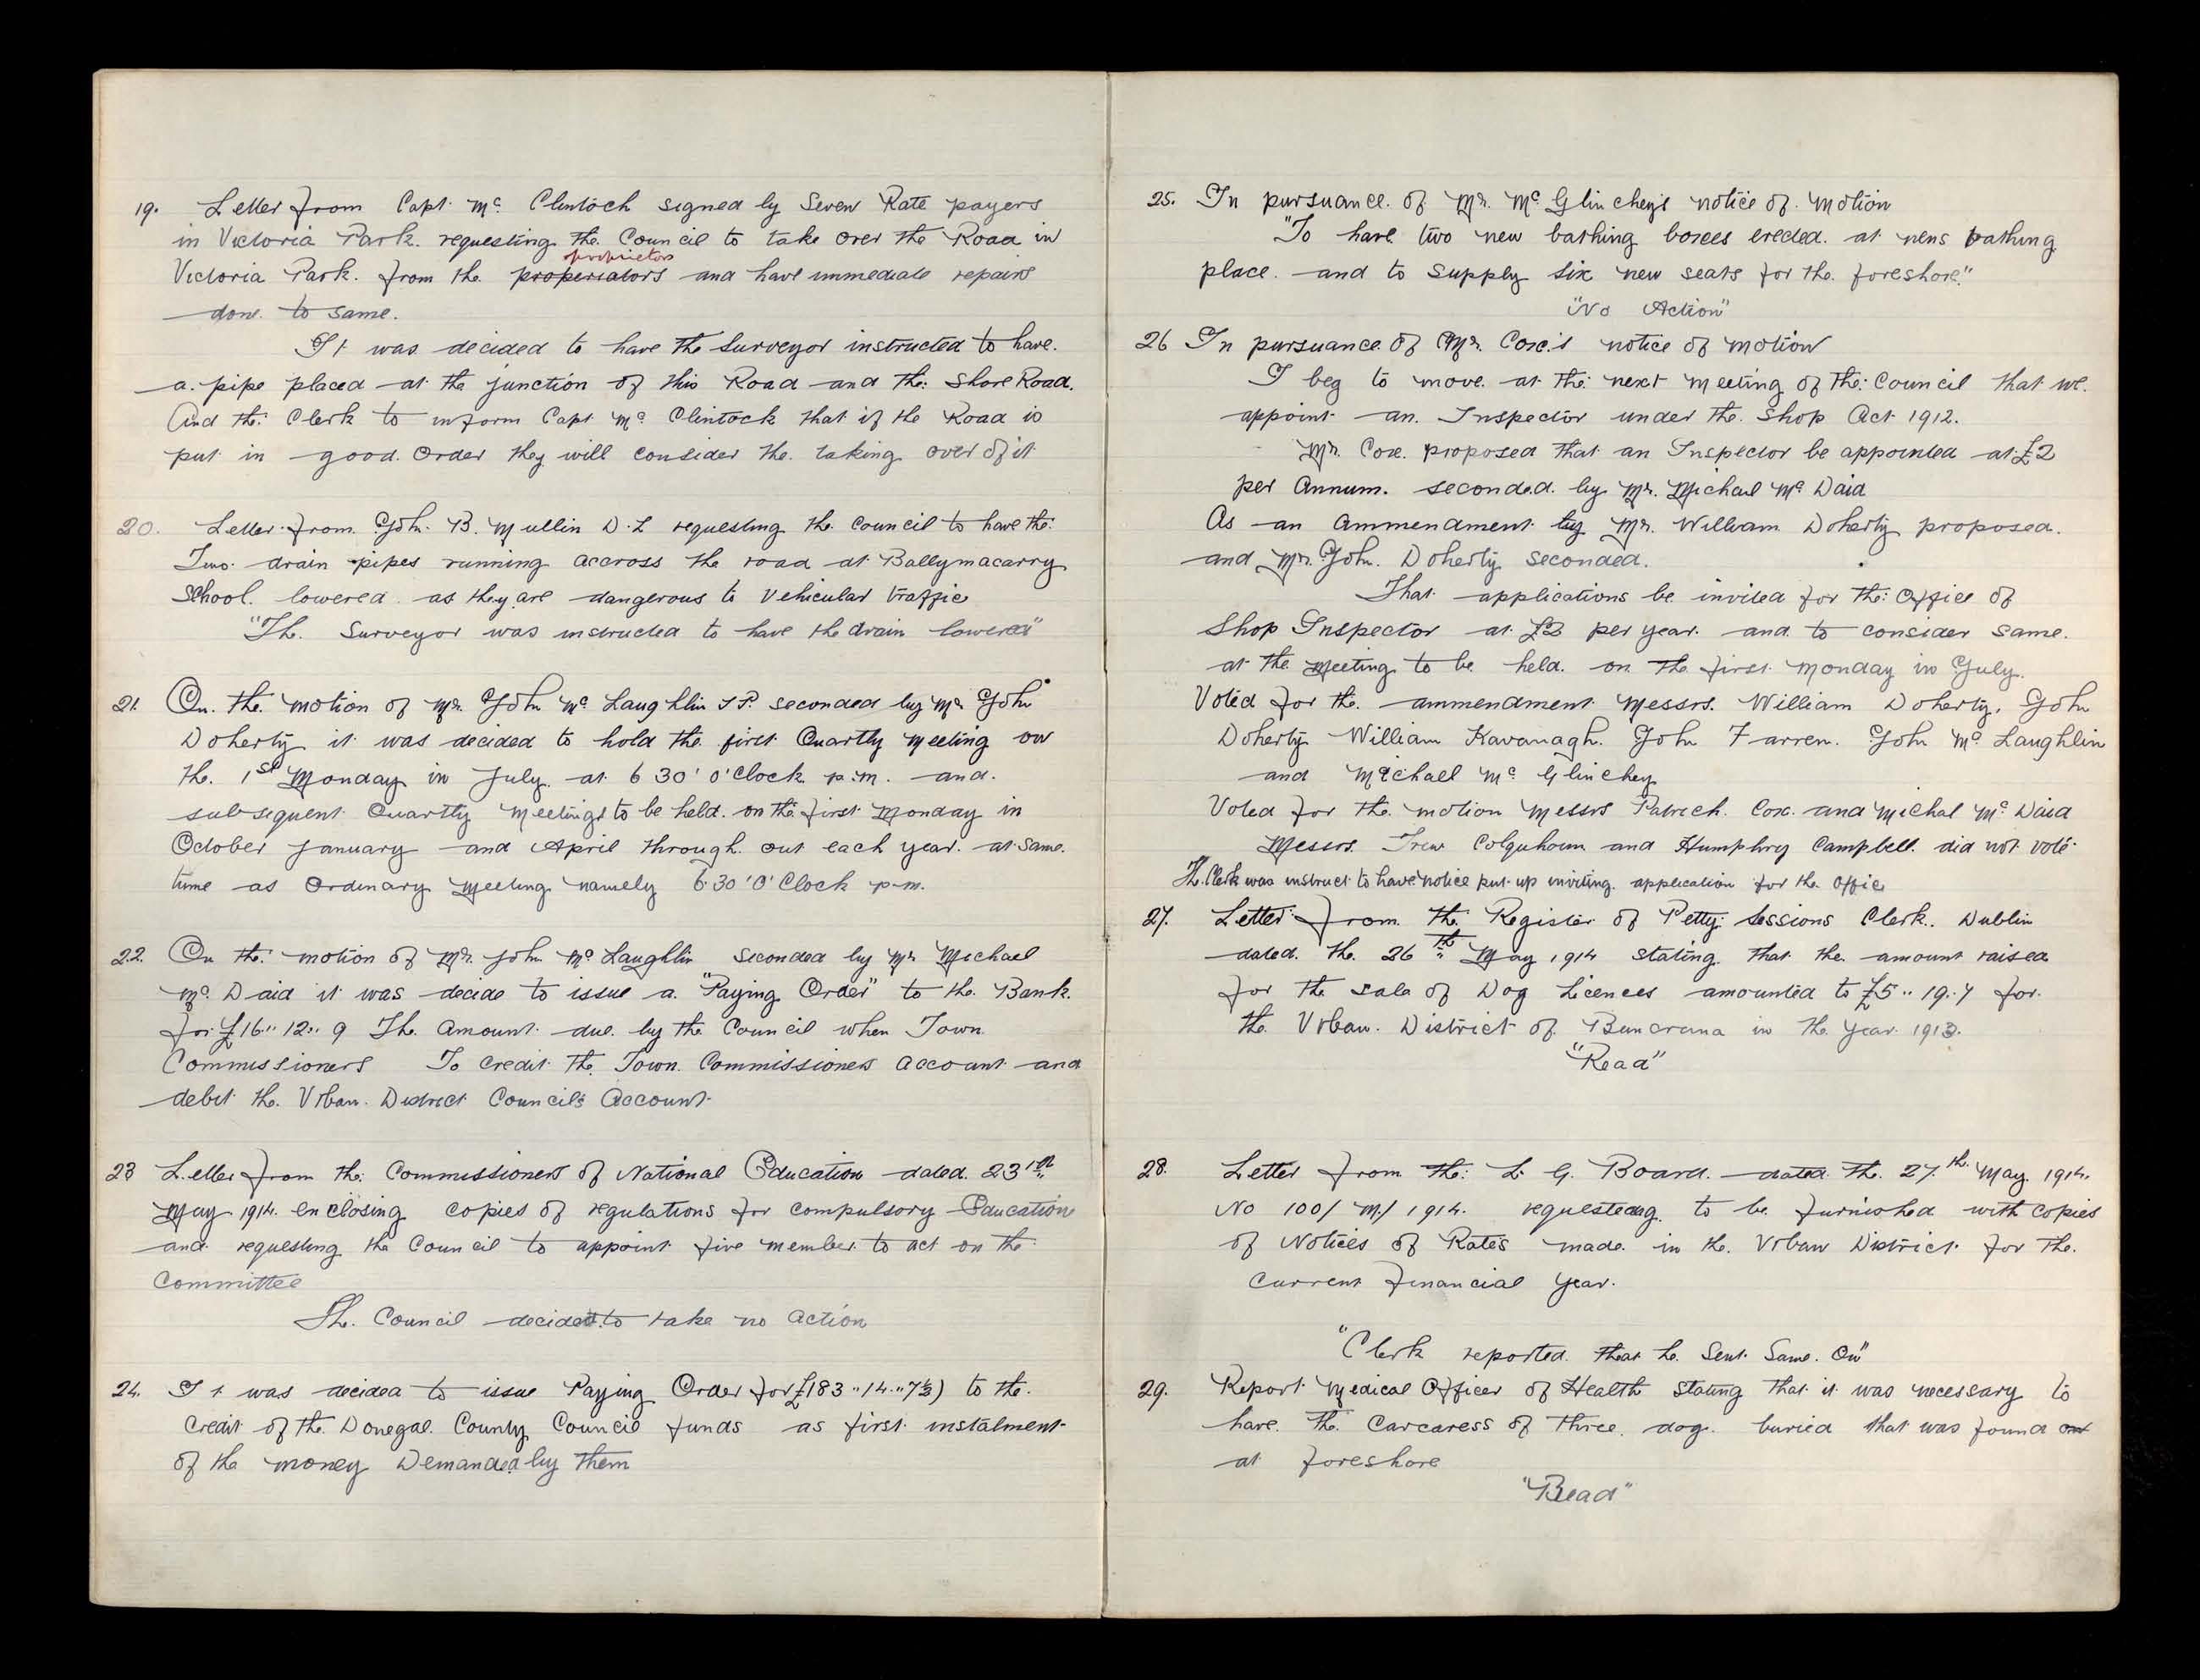 19. Letter from Capt. Mc Clintock signed by Seven Rate payers
in Victoria Park. requesting the Council to take over the Road in
proprietors
Victoria Park. from the properiators and have immediate repairs
done to same.
It was decided to have the Surveyor instructed to have.
a pipe placed at the junction of this Road and the Shore Road.
And the Clerk to inform Capt Mc Clintock that if the Road is
put in good Order they will consider the taking over of it
20. Letter from John B. Mullin D.L requesting the Council to have the
Two drain pipes running accross the road at Ballymacarry
School lowered as they are dangerous to Vehicular traffic
"The Surveyor was instructed to have the drain lowered"
21. On the motion of Mr. John Mc Laughlin J.P. seconded by Mr John
Doherty it was decided to hold the first Quartly Meeting on
the 1st Monday in July at 6 30' O'Clock p.m. and
subsequent Quartly Meetings to be held on the first Monday in
October January and April through out each year at same
time as Ordinary Meeting namely 6.30 'O' Clock p.m.
22. On the motion of Mr. John Mc Laughlin Seconded by Mr Michael
Mc Daid it was decide to issue a "Paying Order" to the Bank.
for £16.. 12.. 9 The Amount due by the Council when Town
Commissioners To credit the Town Commissioners account and
debit the Urban District Councils Account.
23 Letter from the Commissioners of National Education dated 23rd
May 1914 enclosing copies of regulations for compulsory Education
and requesting the Council to appoint five member to act on the
Committee
The Council decided to take no action
24. It was decided to issue Paying Order for £183..14..7½) to the
credit of the Donegal County Council funds as first instalment
of the money Demanded by them
25. In pursuance of Mr. Mc Glinchey's notice of Motion
"To have two new bathing boxes erected at mens bathing
place. and to supply six new seats for the foreshore."
"No Action"
26 In pursuance of Mr. Cox's notice of motion
I beg to move at the next meeting of the Council that we
appoint an Inspector under the Shop Act 1912.
Mr. Cox proposed that an Inspector be appointed at £2
per Annum. seconded by Mr. Michael Mc Daid
As an ammendment by Mr. William Doherty proposed.
and Mr. John Doherty seconded.
That applications be invited for the Office of
Shop Inspector at £2 per year and to consider same
at the Meeting to be held on the first Monday in July.
Voted for the ammendment Messrs. William Doherty, John
Doherty William Kavanagh. John Farren. John Mc Laughlin
and Michael Mc Glinchey
Voted for the motion Messrs Patrick Cox. and Michal Mc Daid
Messrs. Trew Colquhoun and Humphry Campbell did not vote
The Clerk was instruct to have notice put up inviting application for the Offic
27. Letter from the Register of Petty Sessions Clerk. Dublin
dated the 26th May 1914 stating that the amount raised
for the sale of Dog Licences amounted to £5.. 19.. 7 for
the Urban District of Buncrana in the year 1913.
"Read"
28. Letter from the L. G. Board. dated the 27th May 1914.
No 100/ M/ 1914. requesteing to be furnished with copies
of Notices of Rates made in the Urban District for the
current financial year.
"Clerk reported that he Sent Same On"
29. Report Medical Officer of Health stating that it was necessary to
have the Carcaress of three dog buried that was found
at foreshore
"Read"